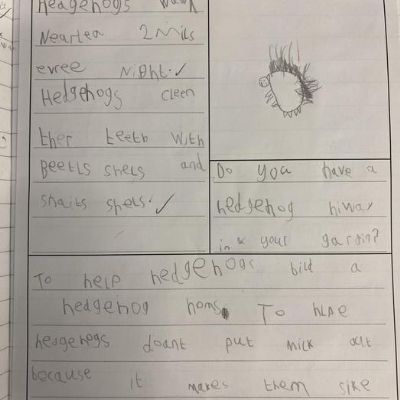 Hedgehogs wawk
Neartea 2 mils
evree night.
Hedgehogs cleen
ther teeth with
Beetls shels and
snails shels.
Do you have a
hedgehog hiway
in your gardin?
To help hedgehogs bild a
hedgehog homs. To hlpe
hedgehogs doant put milk out
because it makes them sike